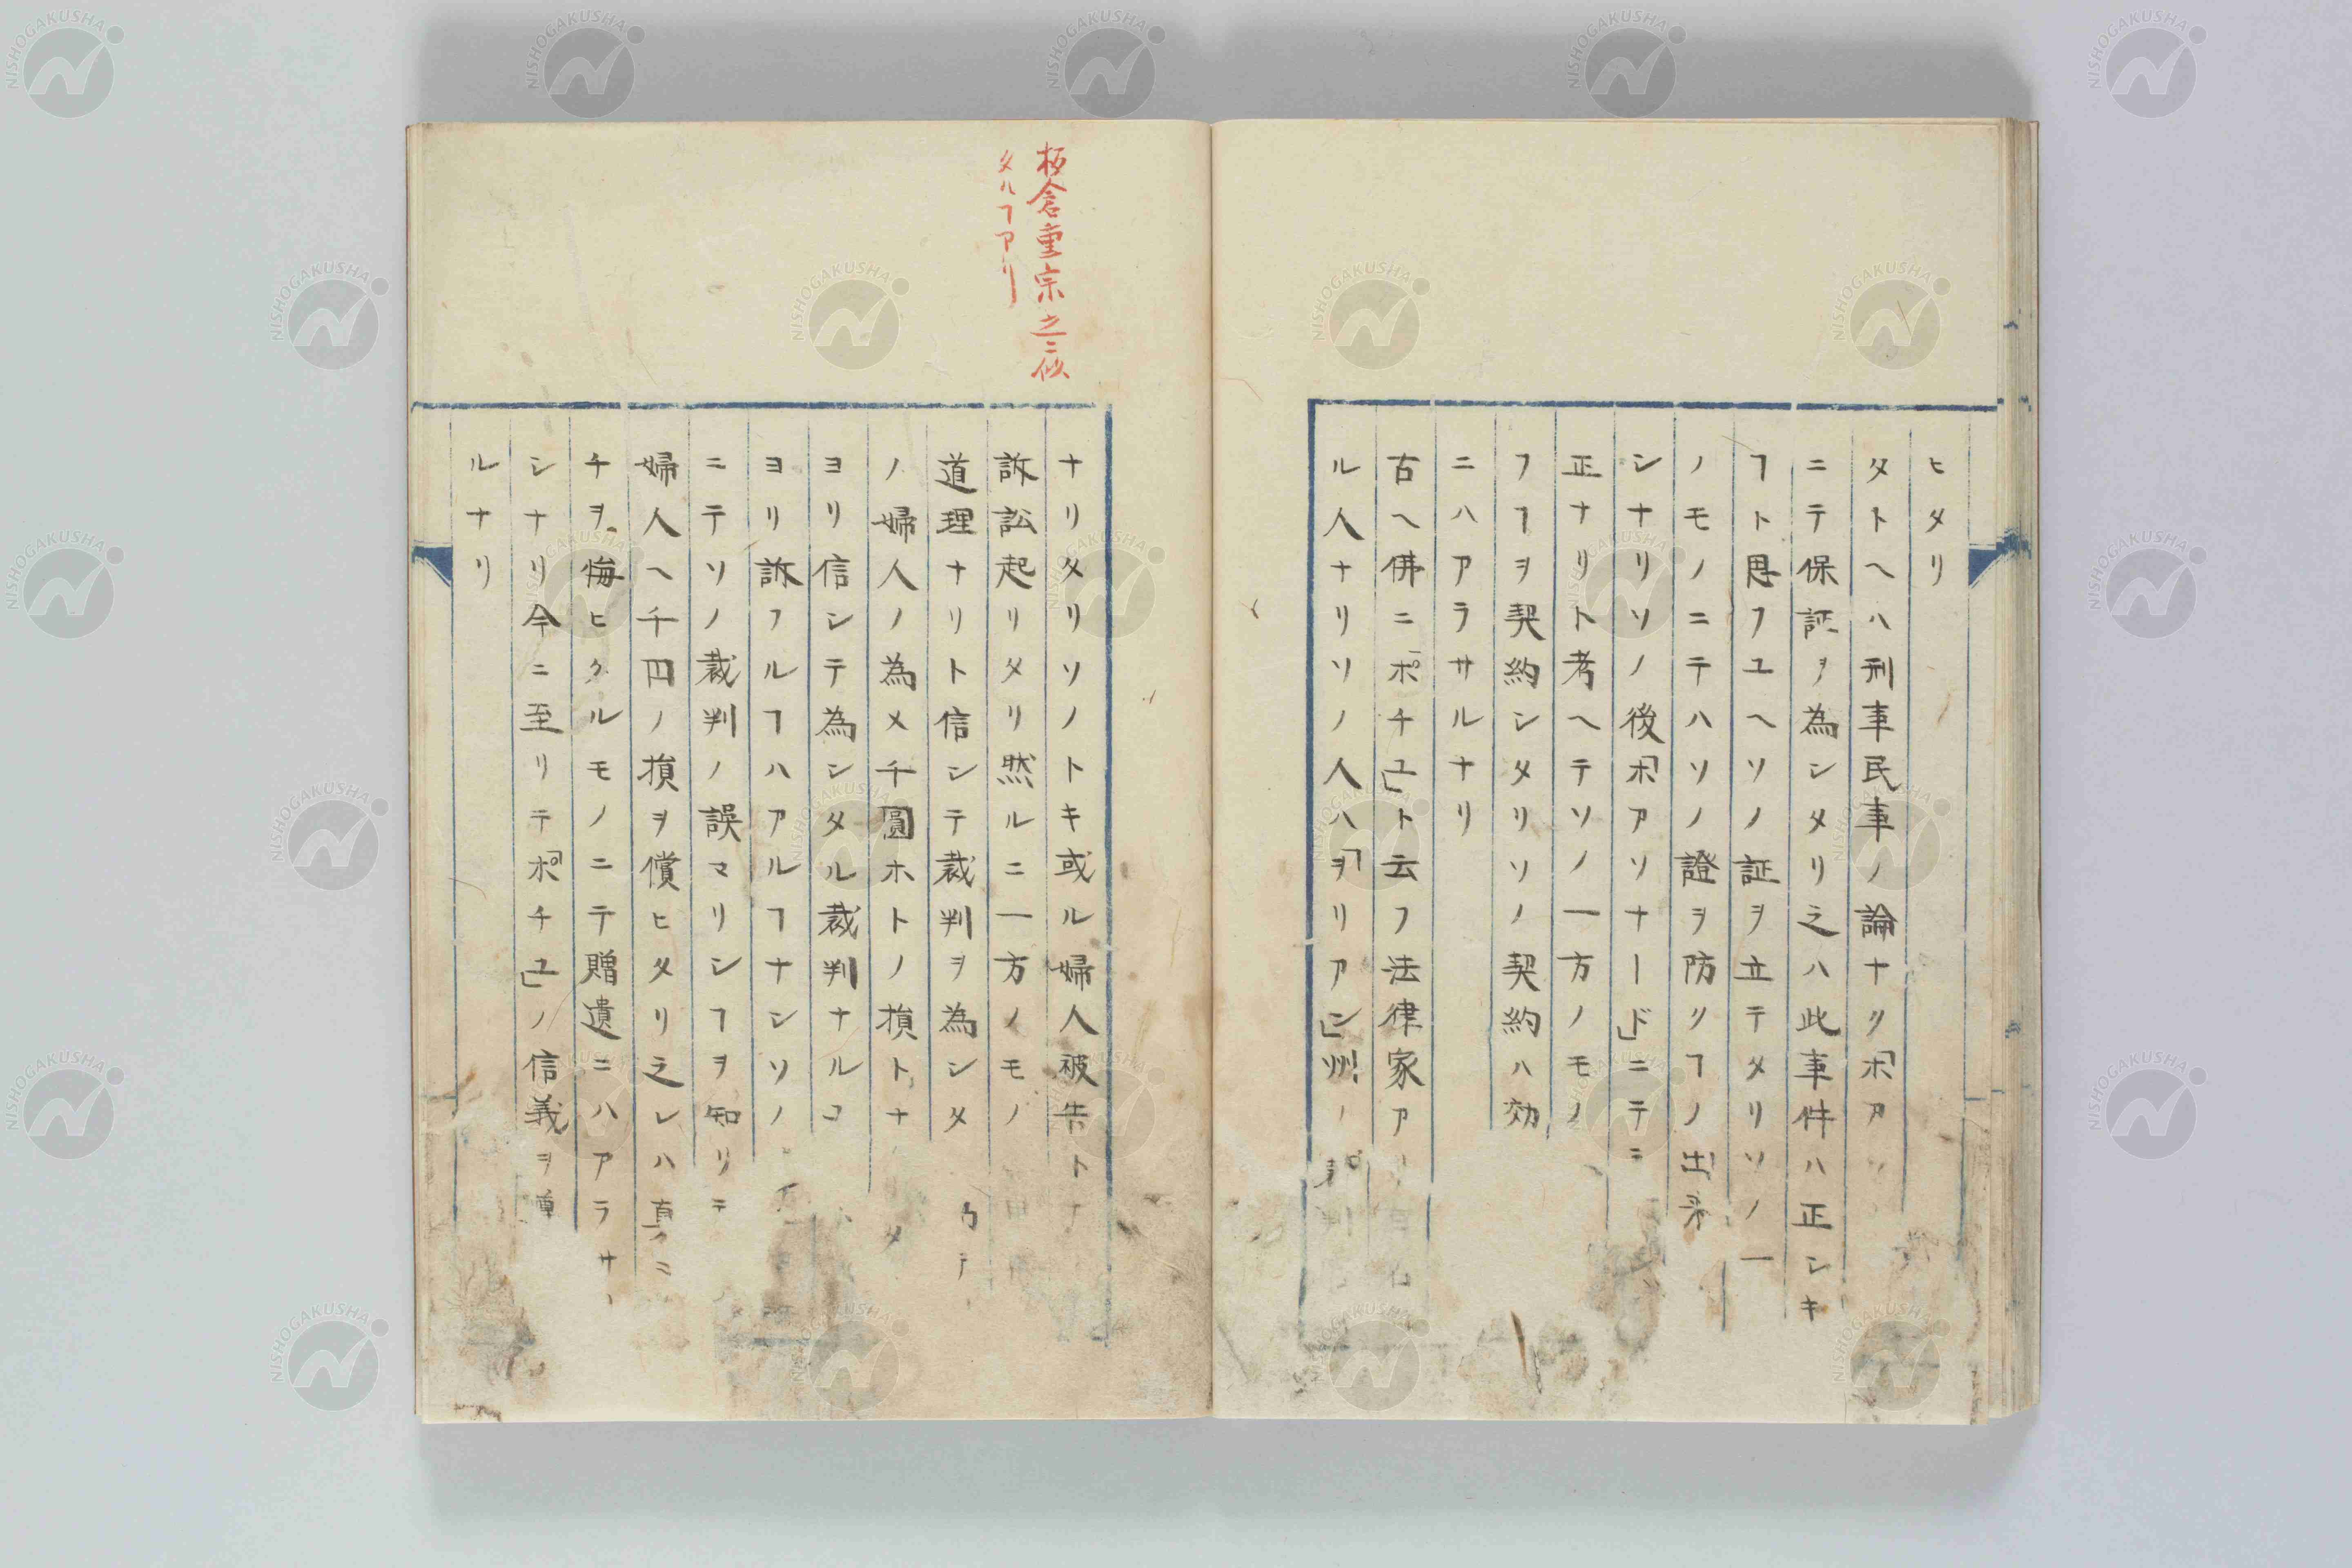 ヒタリ
タトヘハ刑事民事ノ論ナク「ホア
ニテ保証ヲ為シタリ之ハ此事件ハ正シキ
ヿト思フユヘソノ証ヲ立テタリソノ一
ノモノニテハソノ證ヲ防クヿノ出来
シナリソノ後「ホアソナード」ニテニ
正ナリト考ヘテソノ一方ノモノ
フヿヲ契約シタリソノ契約ハ効
ニハアラサルナリ
古ヘ佛ニ「ポチエ」ト云フ法律家ア
ル人ナリソノ人ハ「ヲリアン」州ノ
板倉重宗之ニ似
タルヿアリ
ナリタリソノトキ或ル婦人被告トナ
訴訟起リタリ然ルニ一方ノモノ
道理ナリト信シテ裁判ヲ為シタ
ノ婦人ノ為メ千圓ホトノ損トナ
ヨリ信シテ為シタル裁判ナルコ
ヨリ訴フルヿハアルヿナシソノ
ニテソノ裁判ノ誤マリシヿヲ知リテ
婦人ヘ千円ノ損ヲ償ヒタリ之レハ真ニ
チヲ悔ヒタルモノニテ贈遺ニハアラサ
シナリ今ニ至リテ「ポチエ」ノ信義ヲ
ルナリ
NISHOGAKUSHA